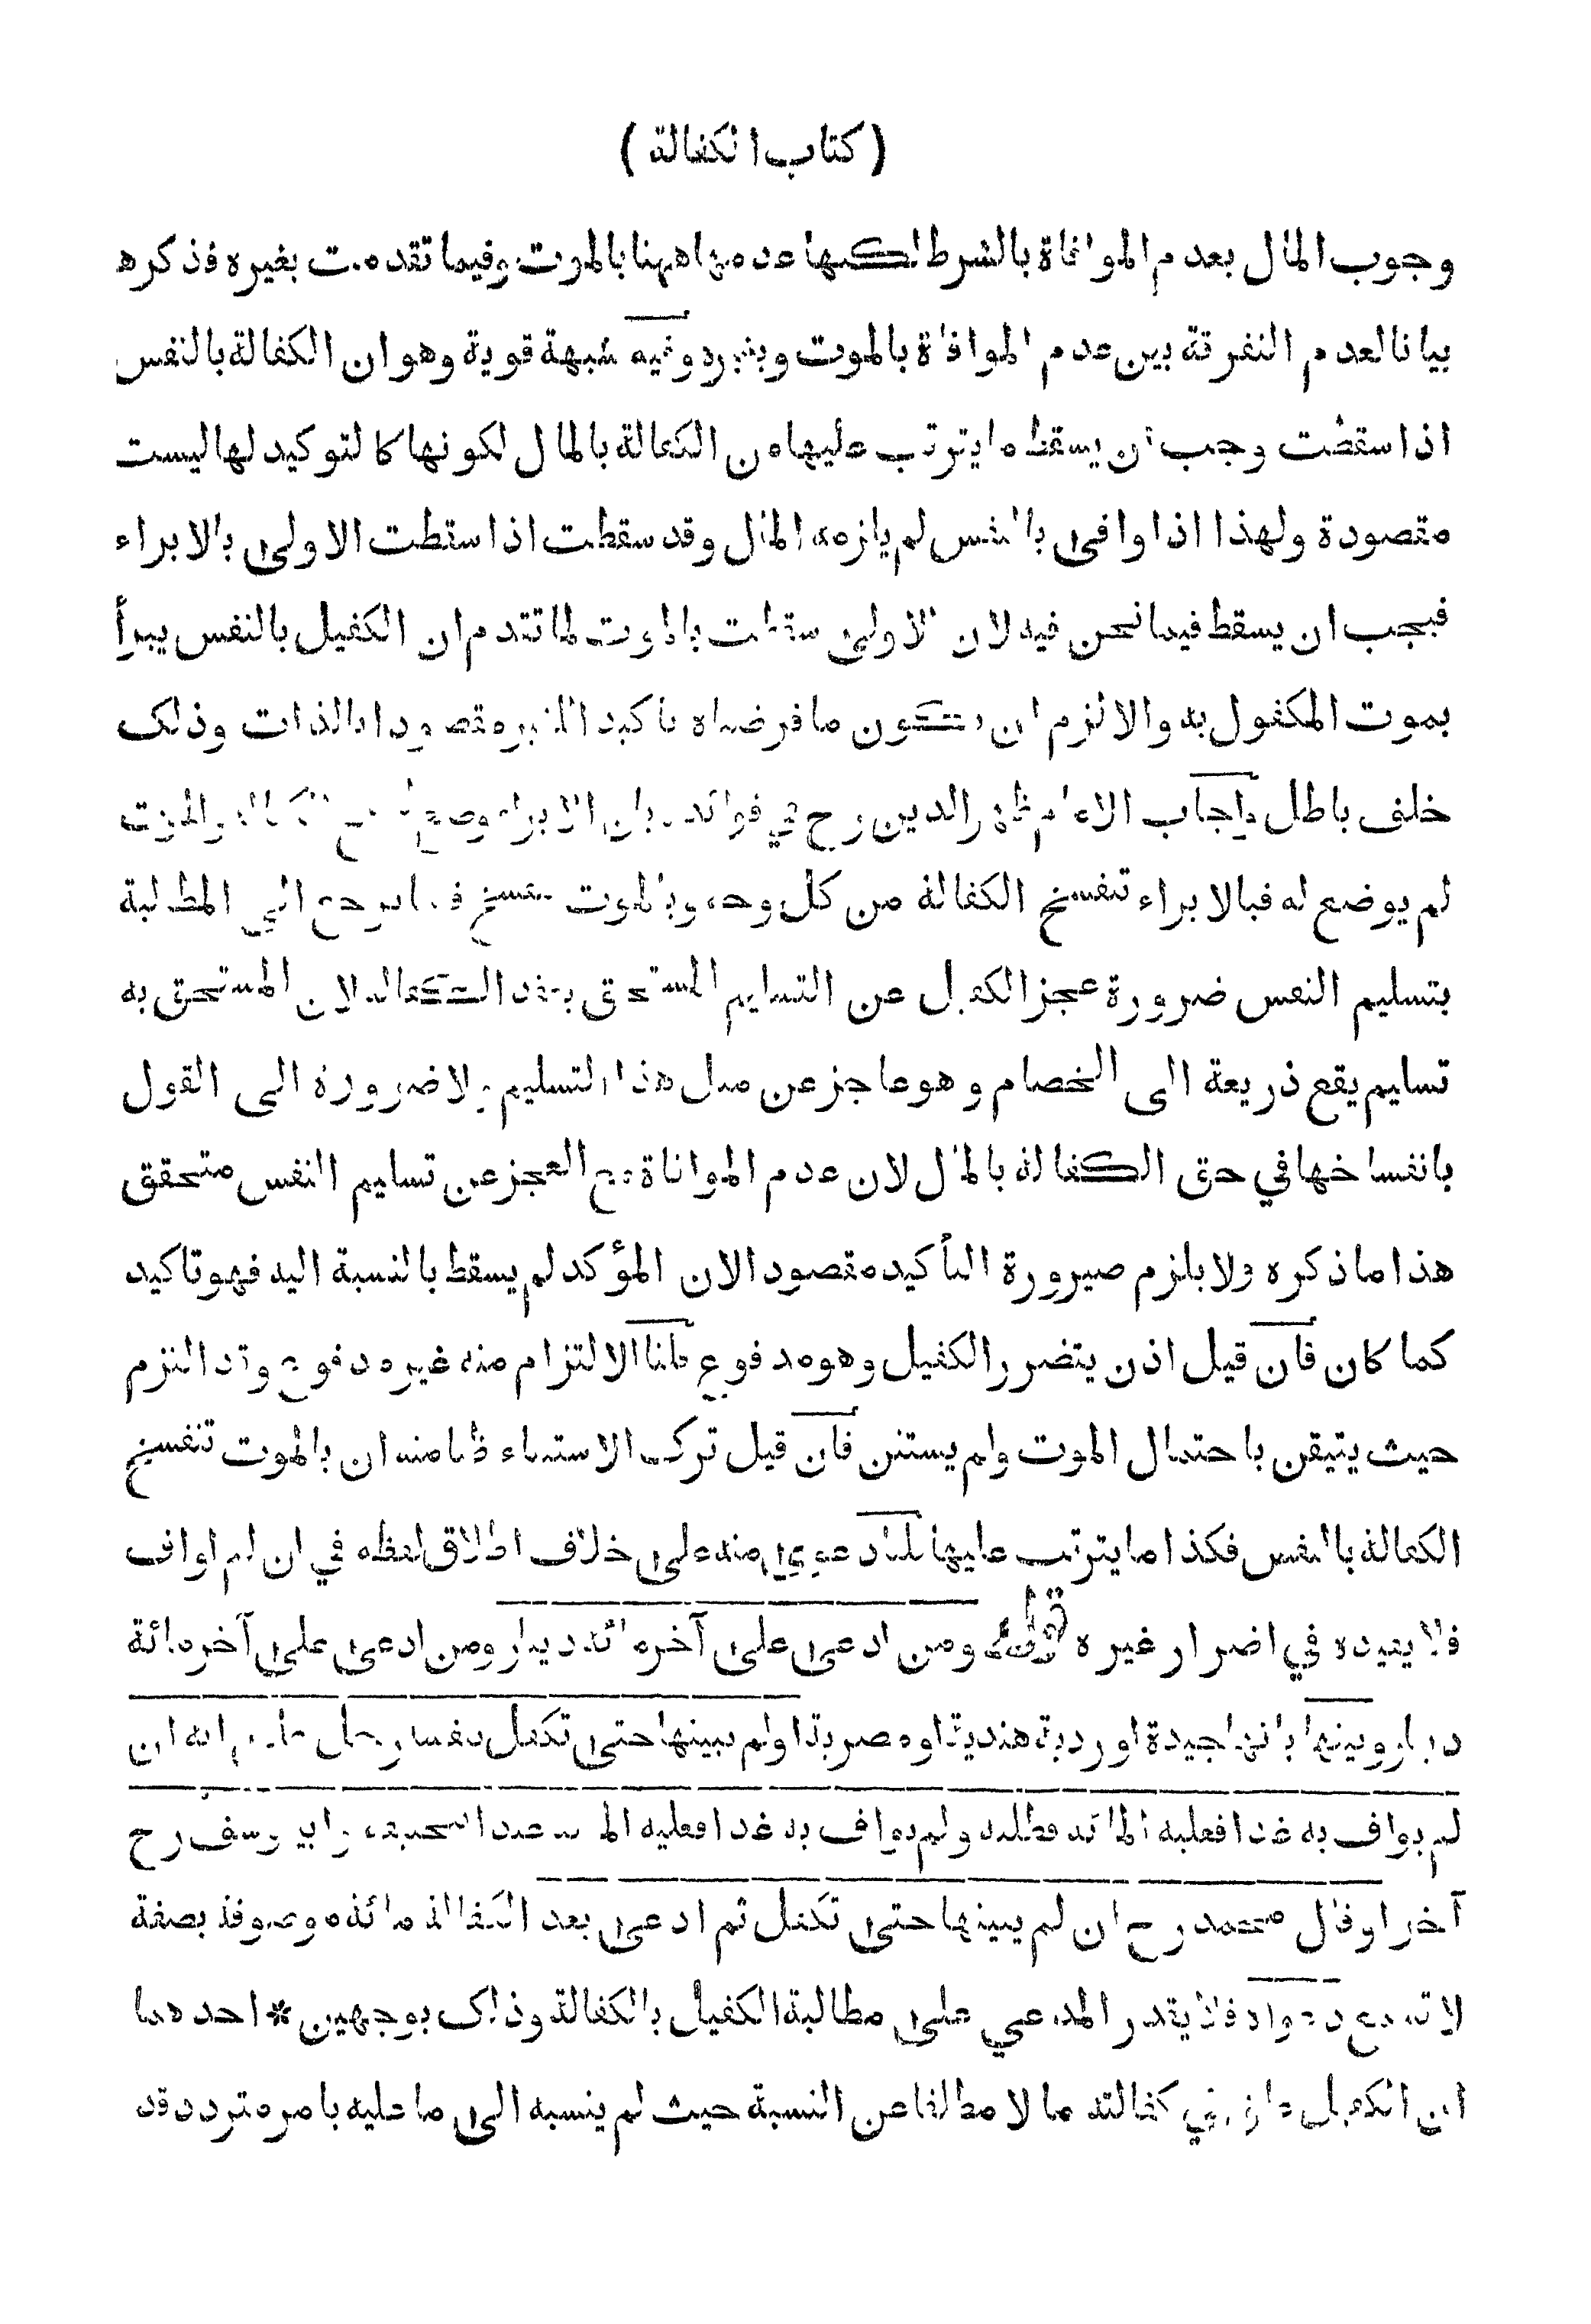 ( كتاب الكفالة )
وجوب المال بعدم الموافاة بالشرط لكنها عدمها ههنا بالموت وفيما تقدمت بغيره فذكره
بيانا لعدم التفرقة بين عدم الموافاة بالموت وبغيره وفيه شبهة قوية وهو ان الكفالة بالنفس
اذا سقطت وجب ان يسقط ما يترتب عليها من الكفالة بالمال لكونها كالتوكيد لها ليست
مقصودة ولهذا اذا وافى بالنفس لم يلزمه المال وقد سقطت اذا سقطت الاولى بالابراء
فيجب ان يسقط فيما نحن فيه لان الاولى سقطت بالموت لما تقدم ان الكفيل بالنفس يبرأ
بموت المكفول به والا لزم ان يكون ما فرضناه تاكيدا لغيره مقصودا بالذات وذلك
خلف باطل واجاب الامام ظهير الدين رح في فوائده بان الابراء وضع لفسخ الكفالة والموت
لم يوضع له فبالابراء تنفسخ الكفالة من كل وجه وبالموت تنفسخ فيما يرجع الى المطالبة
بتسليم النفس ضرورة عجز الكفيل عن التسليم المستحق بعقد الكفالة لان المستحق به
تسليم يقع ذريعة الى الخصام وهو عاجز عن مثل هذا التسليم ولا ضرورة الى القول
بانفساخها في حق الكفالة بالمال لان عدم الموافاة مع العجز عن تسليم النفس متحقق
هذا ما ذكره ولا يلزم صيرورة التأكيد مقصود الان المؤكد لم يسقط بالنسبة اليه فهو تاكيد
كما كان فان قيل اذن يتضرر الكفيل وهو مدفوع قلنا الالتزام منه غير مدفوع وقد التزم
حيث يتيقن باحتمال الموت ولم يستثن فان قيل ترك الاستثناء ظنا منه ان بالموت تنفسخ
الكفالة بالنفس فكذا ما يترتب عليها قلنا دعوى منه على خلاف اطلاق لفظه في ان لم اواف
فلا يفيده في اضرار غيره قوله ومن ادعى على آخر مائة دينار ومن ادعى على آخر مائة
دينار وبينها بانها جيدة او ردية هندية او مصرية او لم يبينها حتى تكفل بنفسه رجل على انه ان
لم يواف به غدا فعليه المائة فلم يواف به غدا فعليه المائة عند ابي حنيفة وابي يوسف رح
آخرا وقال محمد رح ان لم يبينها حتى تكفل ثم ادعى بعد الكفالة مائة موصوفة بصفة
لا تسمع دعواه فلا يقدر المدعي على مطالبة الكفيل بالكفالة وذلك بوجهين * احدهما
ان الكفيل علق في كفالته مالا مطلقا عن النسبة حيث لم ينسبه الى ما عليه بامر متردد قد